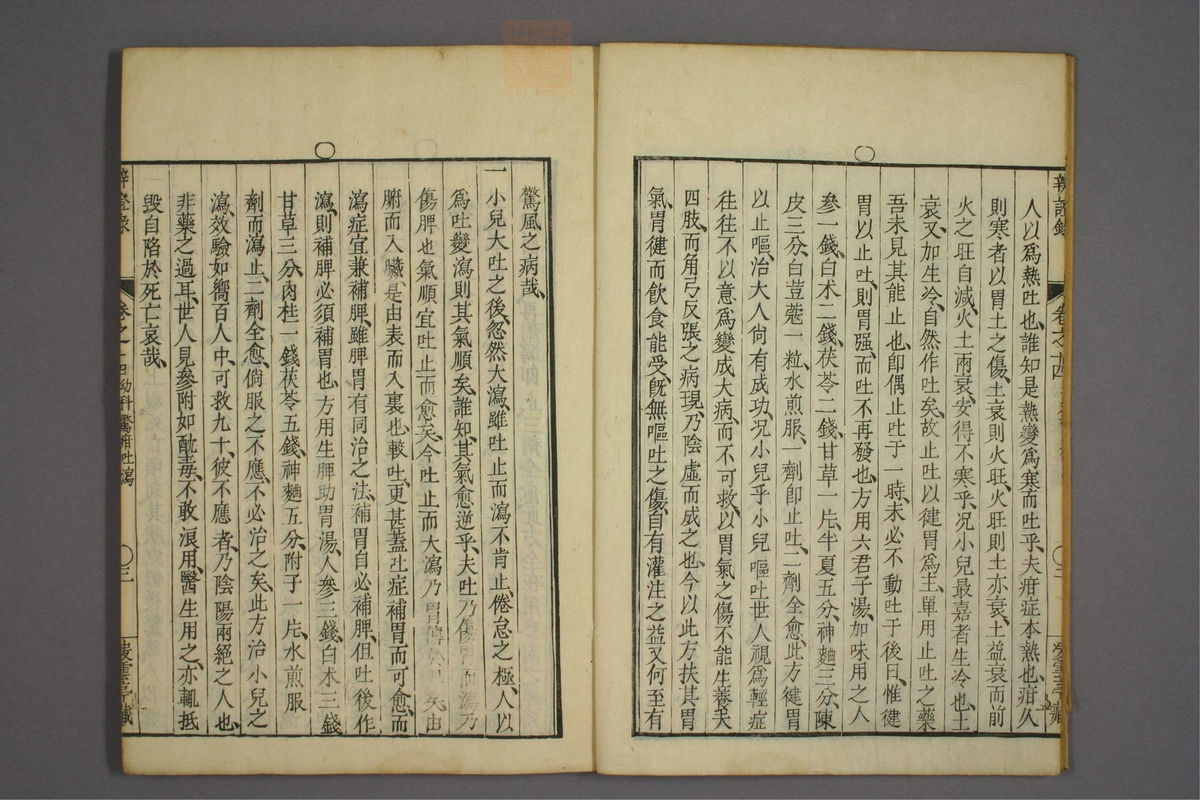 人以爲熱吐也、誰知是熱變爲寒而吐乎、夫疳症本熱也、疳久
則寒者以胃土之傷、土衰則火旺、火旺則土亦衰、土益衰而前
火之旺自減、火土兩衰、安得不寒乎、况小兒最嘉者生冷也、土
衰、又加生冷、自然作吐矣、故止吐以健胃爲主、單用止吐之藥
吾未見其能止也、卽偶止吐于一時、未必不動吐于後日、惟健
胃以止吐、則胃强、而吐不再發也、方用六君子湯、加味用之人
參一錢、白朮二錢、茯苓二錢、甘草一片、半夏五分、神麯三分、陳
皮三分、白荳蔻一粒、水煎服、一劑卽止吐、二劑全愈、此方健胃
以止嘔、治大人尙有成功、况小兒乎、小兒嘔吐世人視爲輕症
往往不以意爲變成大病、而不可救、以胃氣之傷不能生養夫
四肢、而角弓反張之病現、乃陰虛而成之也、今以此方扶其胃
氣、胃健而飮食能受、旣無嘔吐之傷、自有灌注之益、又何至有
驚風之病哉、
一小兒大吐之後、忽然大瀉、雖吐止而瀉不肯止、倦怠之極、人以
爲吐變瀉、則其氣順矣、誰知其氣愈逆乎、夫吐乃傷胃而瀉乃
傷脾也、氣順宜吐止而愈矣、今吐止而大瀉、乃胃傳 矣、由
腑而入臟、是由表而入裏也、較吐、更甚、蓋吐症補胃而可愈、而
瀉症宜兼補脾、雖脾胃有同治之法、補胃自必補脾、但吐後作
瀉、則補脾必須補胃也、方用生脾助胃湯、人參三錢、白朮三錢
甘草三分、肉桂一錢、茯苓五錢、神麯五分、附子一片、水煎服
劑而瀉止、二劑全愈、倘服之不應、不必治之矣、此方治小兒之
瀉、效驗如嚮、百人中、可救九十、彼不應者、乃陰陽兩絕之人也、
非藥之過耳、世人見參附如酖毒、不敢浪用、醫生用之、亦輒抵
毀、自陷於死亡、哀哉、
辨證錄
卷之十四
幼科驚疳吐瀉
三